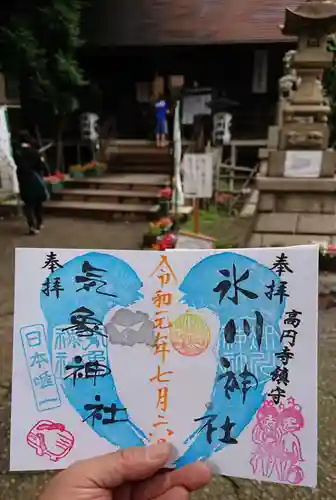 奉拝
氷川神社
高円寺鎮守
令和元年七月二
奉拝
気象神社
日本唯一